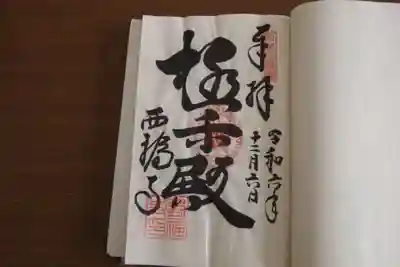 奉拝
令和六年
十二月六日
極楽殿
西福寺